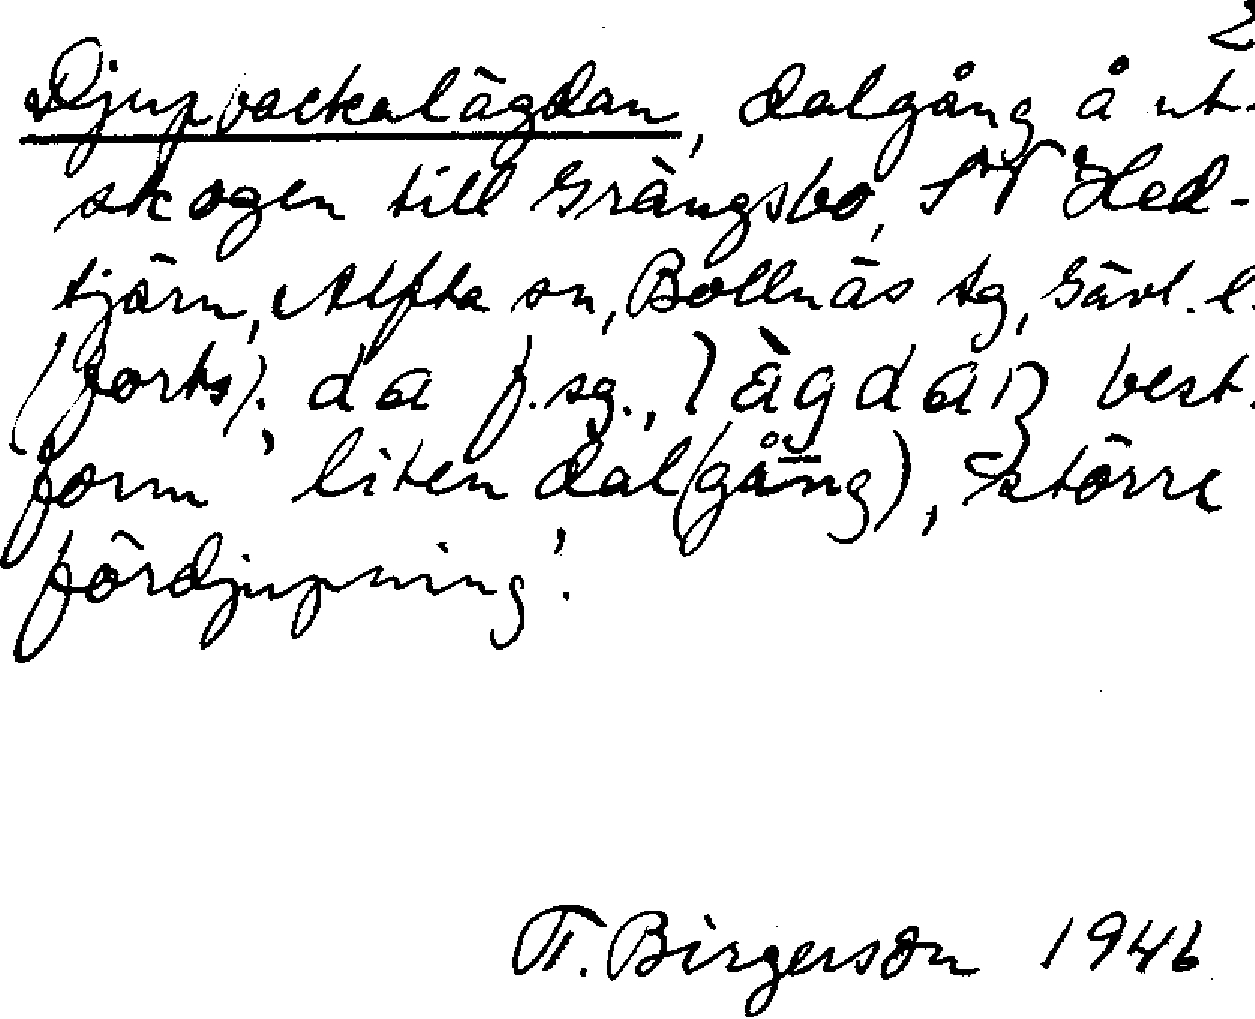 2
Djupbackalägdan, dalgång å ut-
skogen till Grängsbo, SV Hed-
tjärn, Alfta sn, Bollnäs tg, Gävl. l.
(forts). da f. sg., lägdan best.
form 'liten dal(gång), större
fördjupning'.
T. Birgerson 1946